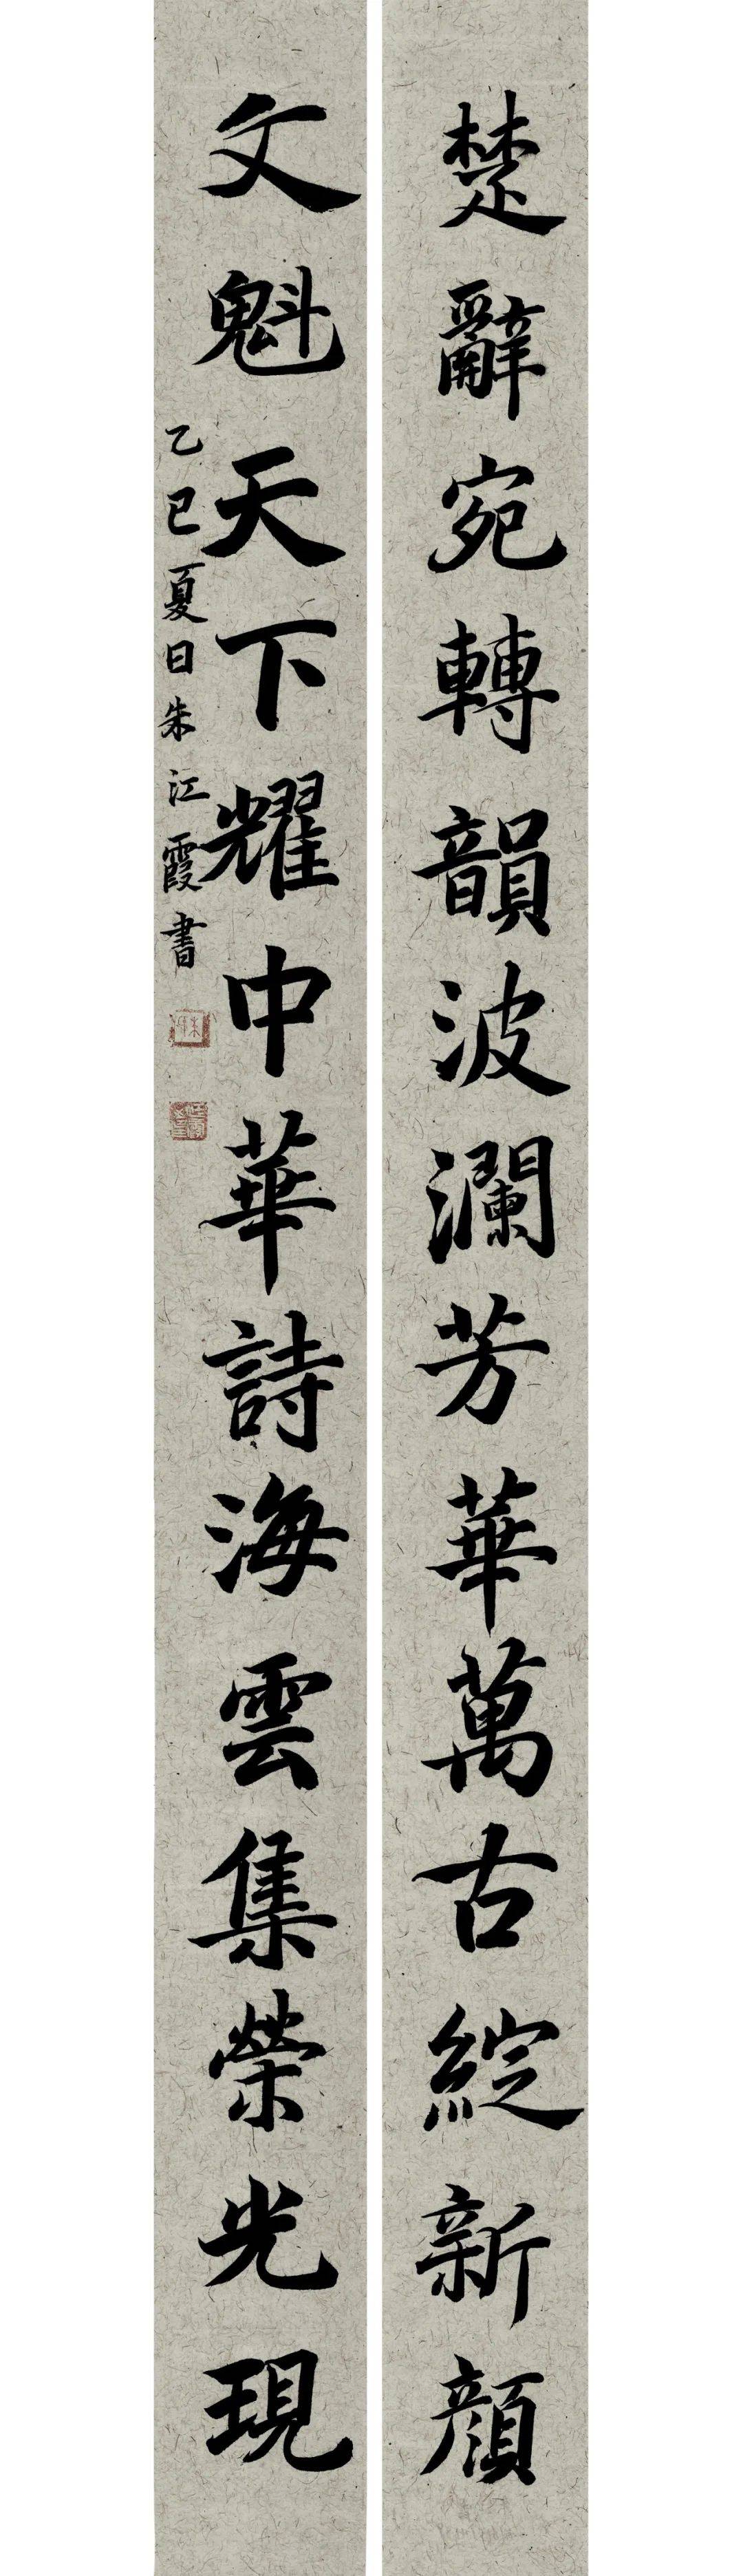 楚辭宛轉韻波瀾芳華萬古綻新顔
文魁天下耀中華詩海雲集榮光現
乙巳夏日朱江霞書